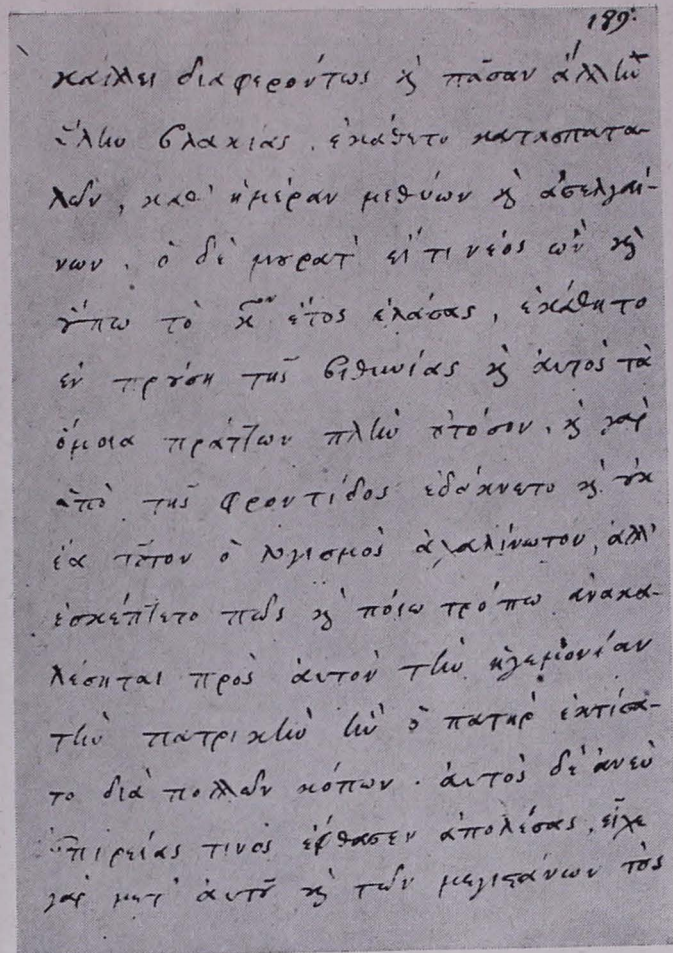 189.
κάλλει διαφερόντως κ̀ πᾶσαν ἄλλην
ὕλην βλακίας. ἐκάθετο κατασπατα-
λῶν, καθ' ἡμέραν μεθύων κ̀ ἀσελγαί-
νων. ὁ δὲ μουρὰτ ἔτι νέος ὢν κ̀
οὔπω τὸ κ^ον ἔτος ἐλάσας, ἐκάθητο
ἐν προύση τῆς βιθυνίας κ̀ ἀυτὸς τὰ
ὅμοια πράττων πλὴν οὐ τόσον. κ̀ γὰρ
ἀπὸ τῆς φροντίδος ἐδάκνετο κ̀ οὐκ
ἔα τοῦτον ὁ λογισμὸς ἀχαλίνωτον, ἀλλ'
ἐσκέπτετο πῶς κ̀ ποίω τρόπω ἀνακα-
λέσηται πρὸς ἀυτὸν τὴν ἡγεμονίαν
τὴν πατρικὴν ἣν ὁ πατὴρ ἐκτίσα-
το διὰ πολλῶν κόπων. ἀυτὸς δὲ ἄνευ
ἀπειρείας τινὸς ἔφθασεν ἀπολέσας, εἶχε
γὰρ μετ' ἀυτοῦ κ̀ τῶν μεγιστάνων τοὺς